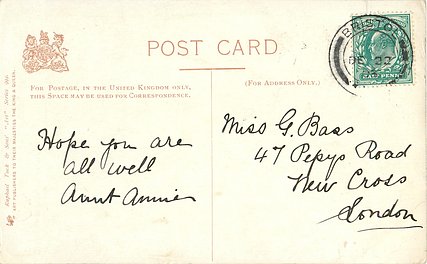 POST CARD
FOR POSTAGE, IN THE UNITED KINGDOM ONLY,
THIS SPACE MAY BE USED FOR CORRESPONDENCE.
(FOR ADDRESS ONLY.)
BRISTOL
DE 22
HALFPENNY
Hope you are
all well
Aunt Annie
Miss G. Bass
47 Pepys Road
New Cross
London
Raphael Tuck & Sons'
ART PUBLISHERS TO THEIR MAJESTIES THE KING & QUEEN.